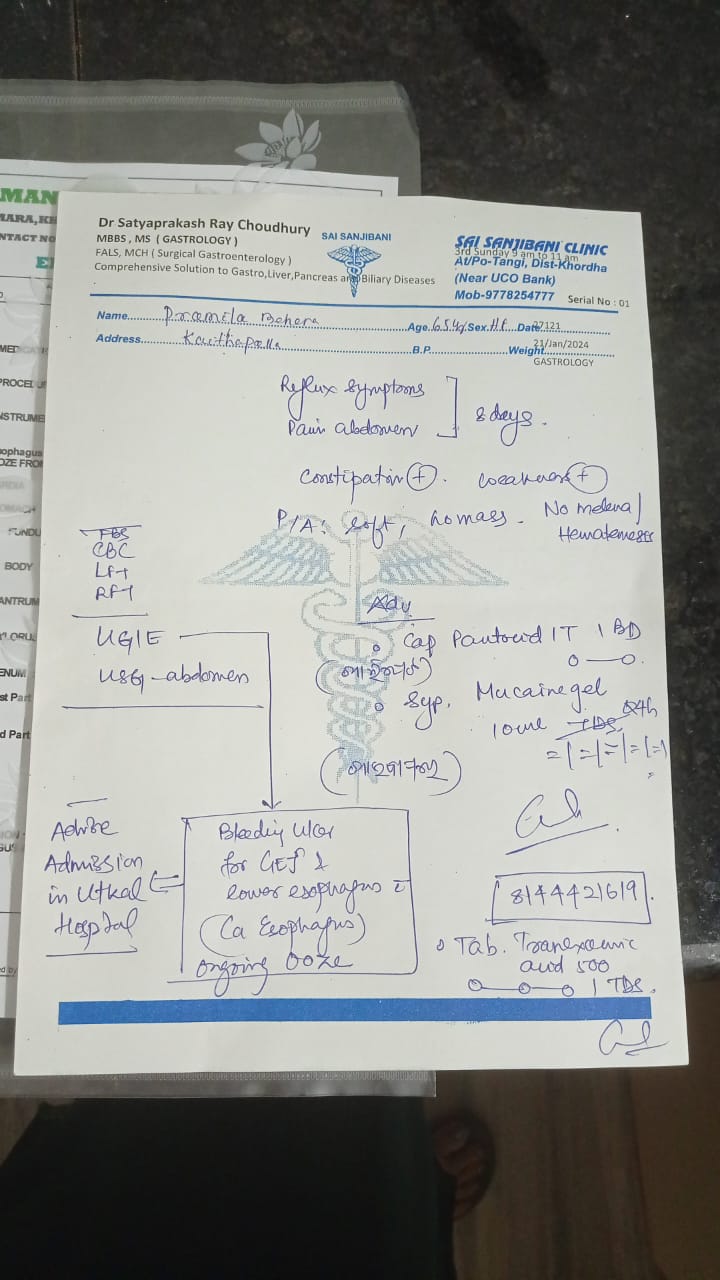 Dr Satyaprakash Ray Choudhury
MBBS , MS ( GASTROLOGY )
FALS, MCH ( Surgical Gastroenterology )
Comprehensive Solution to Gastro,Liver,Pancreas and Biliary Diseases
SAI SANJIBANI
SAI SANJIBANI CLINIC
3rd Sunday 9 am to 11 am
At/Po-Tangi, Dist-Khordha
(Near UCO Bank)
Mob-9778254777 Serial No : 01
Name Pramila Behera Age 65y Sex Date 27121
Address B.P Weight 21/Jan/2024
GASTROLOGY
Reflux symptoms
Pain abdomen
8 days.
Constipation (+). weakness (+)
P/A: soft, no mass. No melena/
Hematemesis
FBS
CBC
LFT
RFT
UGIE
USG-abdomen
Adv
Cap Pantocid IT 1 BD
Syp. Mucaine gel
10ml TDS 64h
=1=1=1=1=1
Advise
Admission
in Utkal
Hospital
Bleeding Ulcer
for GEJ &
lower esophagus
(Ca Esophagus)
ongoing ooze
8144421619
Tab. Tranexamic
acid 500
1 TDS.
MAN
MARA, KH
NTACT NO
MED
PROCEDU
NSTRUME
sophagua
OZE FROM
CARDIA
FUNDU
BODY
ANTRUM
PYLORU
ENUM
st Part
d Part